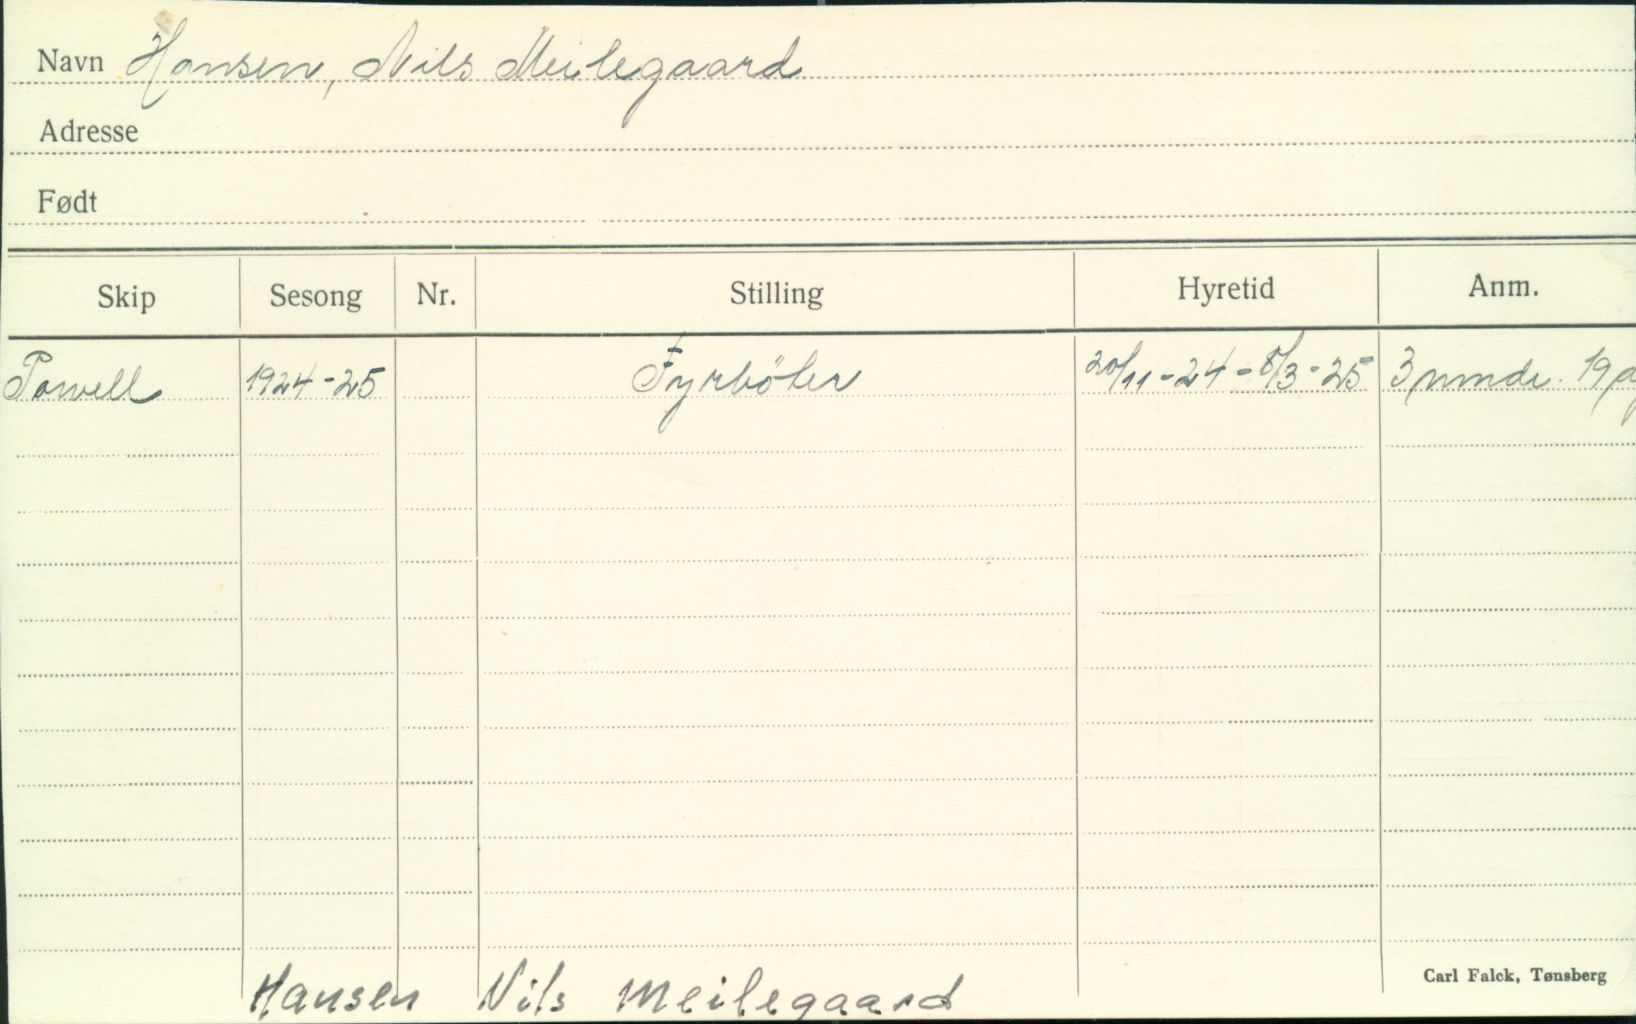 Navn Hansen, Nils Meilegaard
Adresse
Født
Skip Sesong Nr. Stilling Hyretid Anm.
Powell 1924-25 Fyrböter 20/11-24-8/3-25 3 mmdr. 19 d
Carl Falck, Tønsberg
Hansen Nils Meilegaard